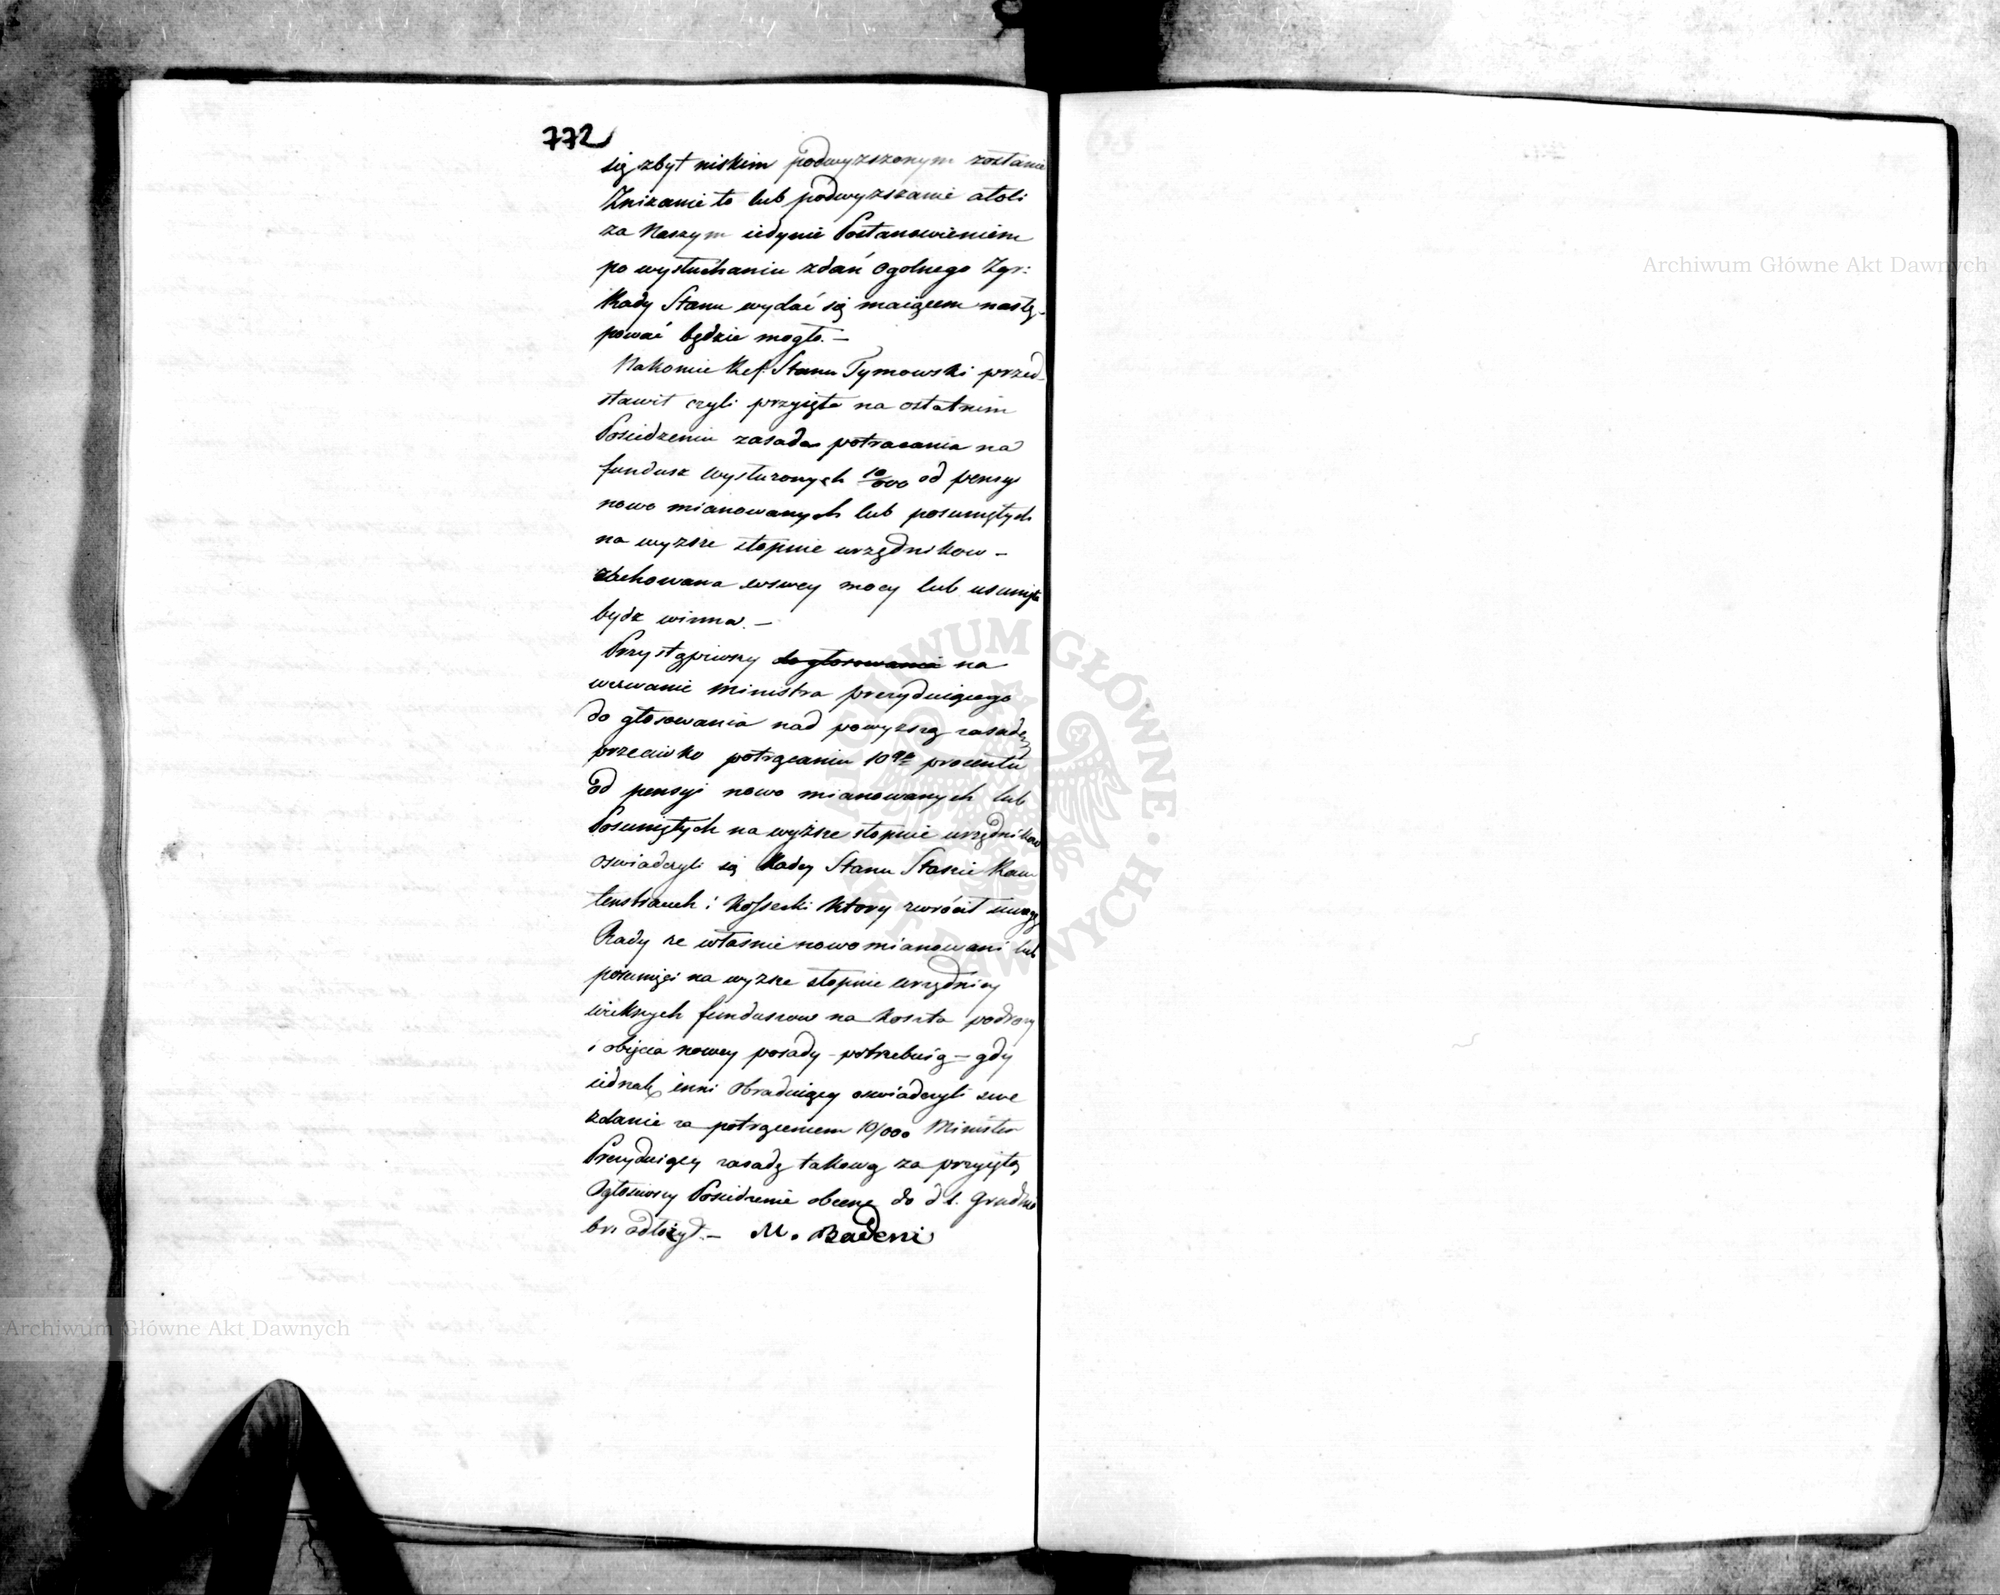 772
się zbyt niskim podwyzszonym zostanie
Zniżanie to lub podwyzszanie atoli
za Naszym iedynie Postanowieniem
po wysłuchaniu zdań Ogolnego Zgr:
Rady Stanu wydać się maiącem nastę-
pować będzie mogło. —
Nakonie Ref. Stanu Tymowski przed-
stawił czyli przyięta na ostatnim
Posiedzeniu zasada potracania na
fundusz Wysłuzonych 10/000 od pensyi
nowo mianowanych lub posuniętych
na wyzsze stopnie urzędnikow —
zachowana wswey mocy lub usunięta
bydz winna. —
Przystąpiwszy do głosowania na
wezwanie ministra prezyduiącego
do głosowania nad powyzszą zasadą
przeciwko potrącaniu 10go procentu
od pensyi nowo mianowanych lub
Posuniętych na wyższe stopnie urzędnikow
oswiadczyli się Radcy Stanu Staszic
i Kossecki który zwrócił uwagę
Rady ze własnie nowo mianowani lub
posunięci na wyzsze stopnie urzędnicy
wieksych funduszow na koszta podrozy
i obięcia nowey posady - potrzebuią - gdy
iednak inni Obraduiący oswiadczyli swe
zdanie za potrąceniem 10/000 Minister
Prezyduiący zasadę takową za przyiętą
Ogłosiwszy Posiedzenie obecne do d 1. Grudnia
br. odłożył. — M. Badeni
Archiwum Główne Akt Dawnych
Archiwum Główne Akt Dawnych
ARCHIWUM GŁÓWNE AKT DAWNYCH